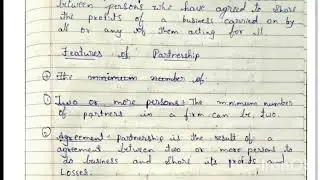 between persons who have agreed to share
the profits of a business carried on by
all or any of them acting for all
Features of Partnership
The minimum number of
① Two or more persons : The minimum number
of partners in a firm can be two.
② Agreement : partnership is the result of a
agreement between two or more persons to
do business and share its profits and
losses.